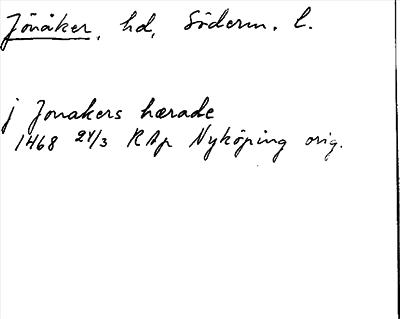 Jönåker, hd, Söderm. l.
j Jonakers hærade
1468 24/3 RAp Nyköping orig.